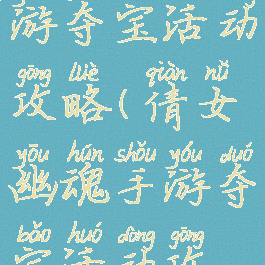 游夺宝活动
gōng lüè qiàn nǚ
攻略(倩女
yōu hún shǒu yóu duó
幽魂手游夺
bǎo huó dòng gōng
宝活动攻